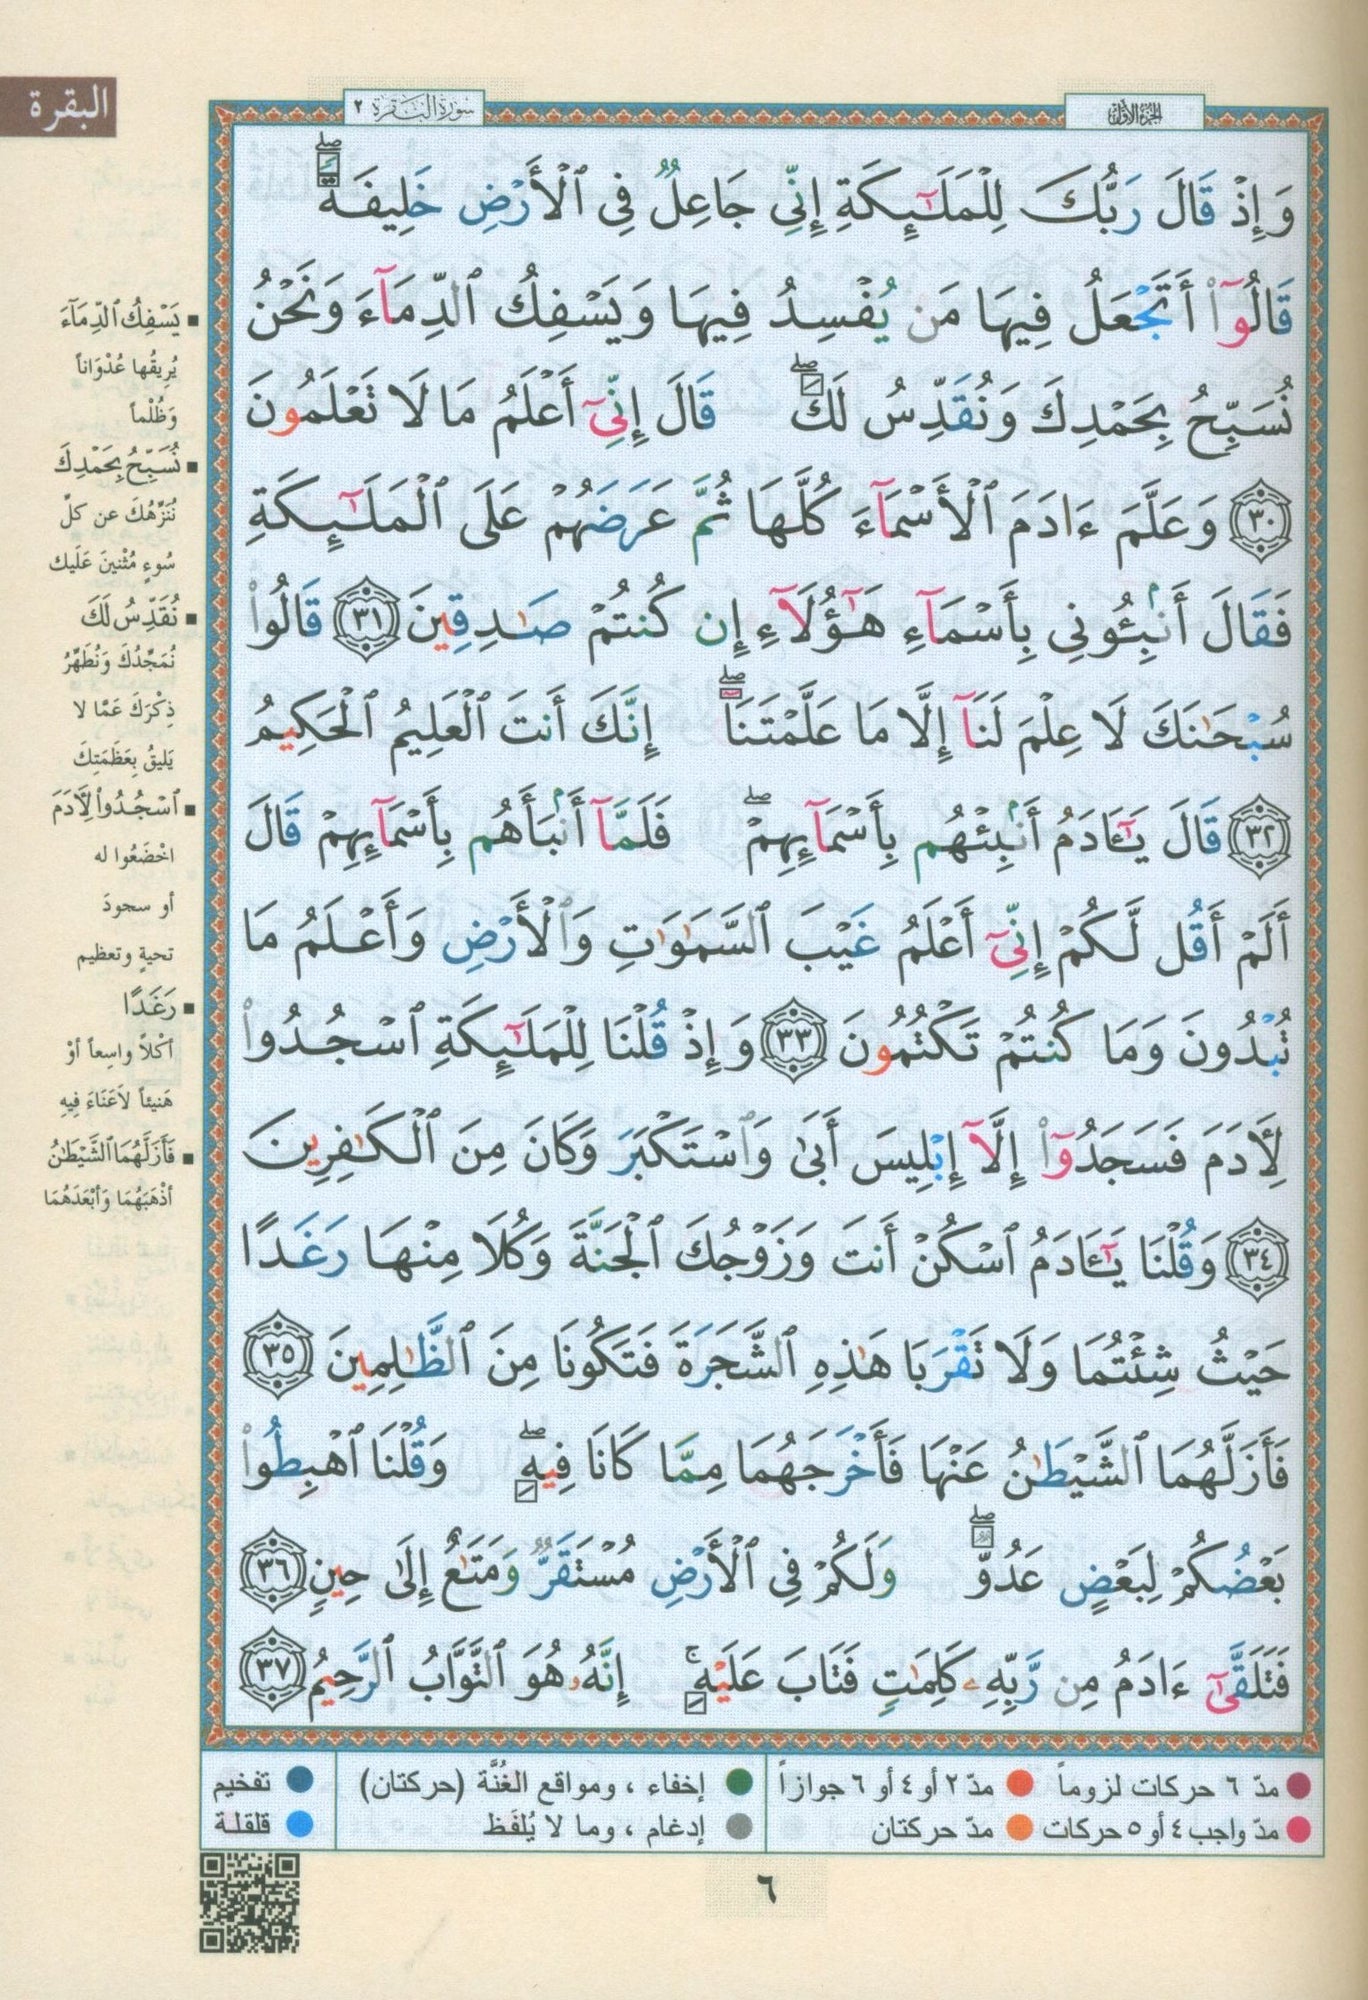 البقرة
الجزء الأول
سورة البقرة ٢
وَإِذْ قَالَ رَبُّكَ لِلْمَلَـٰٓئِكَةِ إِنِّى جَاعِلٌ فِى ٱلْأَرْضِ خَلِيفَةً ۖ
قَالُوٓا۟ أَتَجْعَلُ فِيهَا مَن يُفْسِدُ فِيهَا وَيَسْفِكُ ٱلدِّمَآءَ وَنَحْنُ
نُسَبِّحُ بِحَمْدِكَ وَنُقَدِّسُ لَكَ ۖ قَالَ إِنِّىٓ أَعْلَمُ مَا لَا تَعْلَمُونَ
﴿٣٠﴾ وَعَلَّمَ ءَادَمَ ٱلْأَسْمَآءَ كُلَّهَا ثُمَّ عَرَضَهُمْ عَلَى ٱلْمَلَـٰٓئِكَةِ
فَقَالَ أَنۢبِـُٔونِى بِأَسْمَآءِ هَـٰٓؤُلَآءِ إِن كُنتُمْ صَـٰدِقِينَ ﴿٣١﴾ قَالُوا۟
سُبْحَـٰنَكَ لَا عِلْمَ لَنَآ إِلَّا مَا عَلَّمْتَنَآ ۖ إِنَّكَ أَنتَ ٱلْعَلِيمُ ٱلْحَكِيمُ
﴿٣٢﴾ قَالَ يَـٰٓـَٔادَمُ أَنۢبِئْهُم بِأَسْمَآئِهِمْ ۖ فَلَمَّآ أَنۢبَأَهُم بِأَسْمَآئِهِمْ قَالَ
أَلَمْ أَقُل لَّكُمْ إِنِّىٓ أَعْلَمُ غَيْبَ ٱلسَّمَـٰوَٰتِ وَٱلْأَرْضِ وَأَعْلَمُ مَا
تُبْدُونَ وَمَا كُنتُمْ تَكْتُمُونَ ﴿٣٣﴾ وَإِذْ قُلْنَا لِلْمَلَـٰٓئِكَةِ ٱسْجُدُوا۟
لِـَٔادَمَ فَسَجَدُوٓا۟ إِلَّآ إِبْلِيسَ أَبَىٰ وَٱسْتَكْبَرَ وَكَانَ مِنَ ٱلْكَـٰفِرِينَ
﴿٣٤﴾ وَقُلْنَا يَـٰٓـَٔادَمُ ٱسْكُنْ أَنتَ وَزَوْجُكَ ٱلْجَنَّةَ وَكُلَا مِنْهَا رَغَدًا
حَيْثُ شِئْتُمَا وَلَا تَقْرَبَا هَـٰذِهِ ٱلشَّجَرَةَ فَتَكُونَا مِنَ ٱلظَّـٰلِمِينَ ﴿٣٥﴾
فَأَزَلَّهُمَا ٱلشَّيْطَـٰنُ عَنْهَا فَأَخْرَجَهُمَا مِمَّا كَانَا فِيهِ ۖ وَقُلْنَا ٱهْبِطُوا۟
بَعْضُكُمْ لِبَعْضٍ عَدُوٌّ ۖ وَلَكُمْ فِى ٱلْأَرْضِ مُسْتَقَرٌّ وَمَتَـٰعٌ إِلَىٰ حِينٍ ﴿٣٦﴾
فَتَلَقَّىٰٓ ءَادَمُ مِن رَّبِّهِۦ كَلِمَـٰتٍ فَتَابَ عَلَيْهِ ۚ إِنَّهُۥ هُوَ ٱلتَّوَّابُ ٱلرَّحِيمُ ﴿٣٧﴾
▪ يَسْفِكُ ٱلدِّمَآءَ
يُرِيقُها عُدْوَاناً
وَظُلْماً
▪ نُسَبِّحُ بِحَمْدِكَ
نُنَزِّهُكَ عن كلِّ
سُوءٍ مُثْنينَ عَلَيك
▪ نُقَدِّسُ لَكَ
نُمَجِّدُكَ وَنُطَهِّرُ
ذِكْرَكَ عَمَّا لا
يَليقُ بِعَظَمَتِكَ
▪ ٱسْجُدُوا۟ لِـَٔادَمَ
اخْضَعُوا له
أو سجودَ
تحيةٍ وتعظيم
▪ رَغَدًا
أكْلاً واسِعاً أوْ
هَنيئاً لاَعَنَاءَ فِيهِ
▪ فَأَزَلَّهُمَا ٱلشَّيْطَـٰنُ
أذْهَبَهُمَا وَأبْعَدَهُمَا
مدّ ٦ حركات لزوماً مدّ ٢ أو ٤ أو ٦ جوازاً إخفاء ، ومواقع الغُنَّة (حركتان) تفخيم
مدّ واجب ٤ أو ٥ حركات مدّ حركتان إدغام ، وما لا يُلفَظ قلقلة
٦